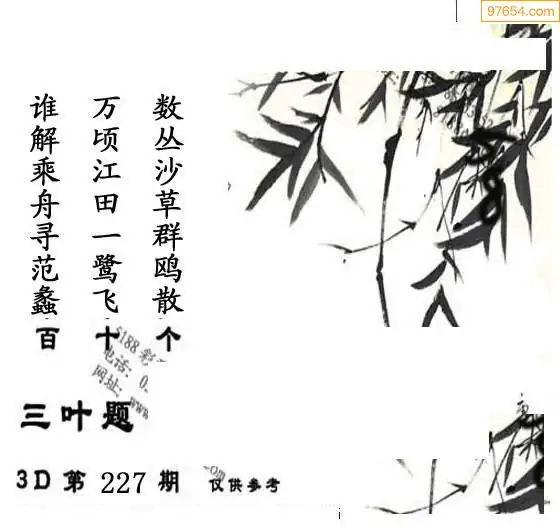 97654.com
数丛沙草群鸥散
万顷江田一鹭飞
谁解乘舟寻范蠡
百 十 个
5188 彩
电话: 0
网址: www
三叶题
3D 第 227 期 仅供参考